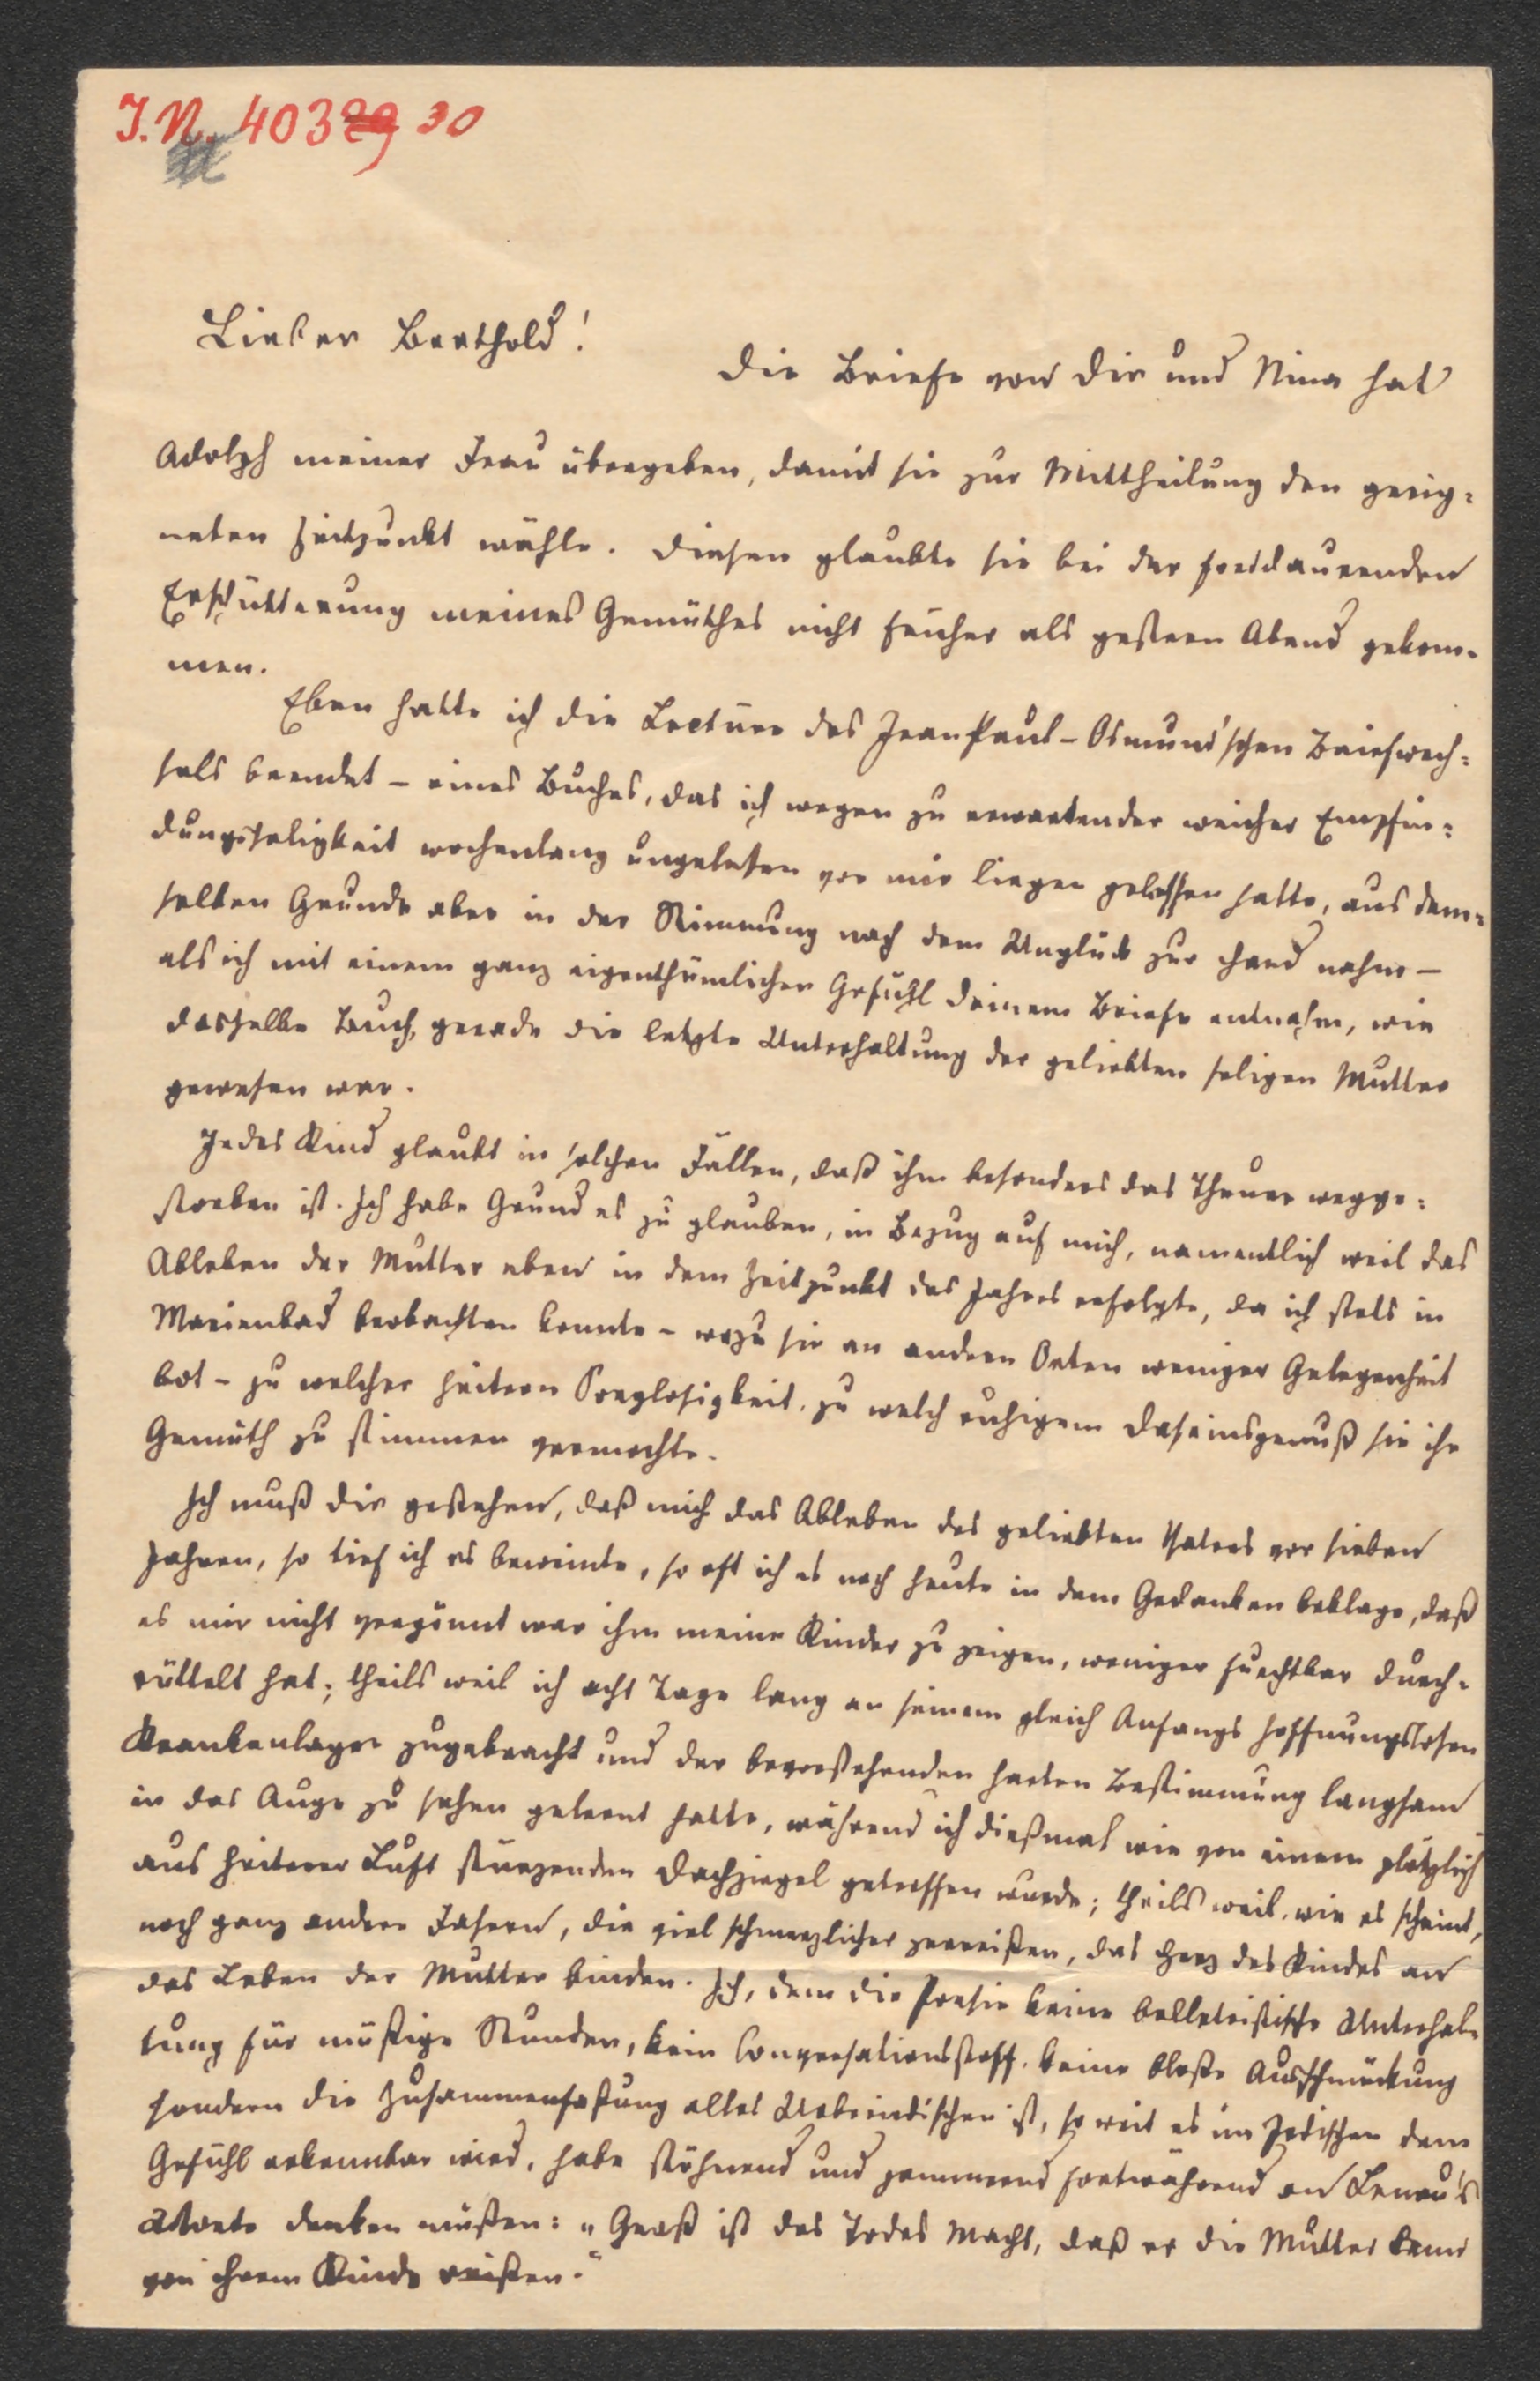 J.N. 40329 30
Lieber Berthold!
Die Briefe von Dir und Nina hat
Adolph meiner Frau übergeben, damit sie zur Mittheilung den geeig-
neten Zeitpunkt wähle. Diesen glaubte sie bei der fortdauernden
Erschütterung meines Gemüthes nicht früher als gestern Abend gekom-
men.
Eben hatte ich die Lectüre des Jean Paul-Osmund'schen Briefwech-
sels beendet – eines Buches, das ich wegen zu erwartender weicher Empfin-
dungsseligkeit wochenlang ungelesen vor mir liegen gelassen hatte, aus dem-
selben Grunde aber in der Stimmung nach dem Unglück zur Hand nahm –
als ich mit einem ganz eigenthümlichen Gefühl Deinem Briefe entnahm, wie
dasselbe Buch, gerade die letzte Unterhaltung der geliebten seligen Mutter
gewesen war.
Jedes Kind glaubt in solchen Fällen, daß ihm besonders das Theure wegge-
storben ist. Ich habe Grund es zu glauben, in Bezug auf mich, namentlich weil das
Ableben der Mutter eben in dem Zeitpunkt des Jahres erfolgte, da ich stets in
Marienbad beobachten konnte – wozu sie an andern Orten weniger Gelegenheit
bot – zu welcher heitern Sorglosigkeit, zu welch ruhigem Daseinsgenuß sie ihr
Gemüth zu stimmen vermochte.
Ich muß Dir gestehen, daß mich das Ableben des geliebten Vaters vor sieben
Jahren, so tief ich es beweinte, so oft ich es noch heute in dem Gedanken beklage, daß
es mir nicht vergönnt war ihm meine Kinder zu zeigen, weniger furchtbar durch-
rüttelt hat; theils weil ich acht Tage lang an seinem gleich Anfangs hoffnungslosen
Krankenlager zugebracht und der bevorstehenden harten Bestimmung langsam
in das Auge zu sehen gelernt hatte, während ich dießmal wie von einem plötzlich
aus heiterer Luft stürzenden Dachziegel getroffen wurde; theils weil, wie es scheint,
noch ganz andere Fasern, die viel schmerzlicher zerreißen, das Herz des Kindes an
das Leben der Mutter binden. Ich, dem die Poesie keine belletristische Unterhal-
tung für müßige Stunden, kein Conversationsstoff, keine bloße Ausschmückung
sondern die Zusammenfassung alles Ueberirdischen ist, so weit es im Irdischen dem
Gefühl erkennbar wird, habe stöhnend und jammernd fortwährend an Lenau's
Worte denken müßen: „Groß ist des Todes Macht, daß er die Mutter kann
von ihrem Kinde reißen."